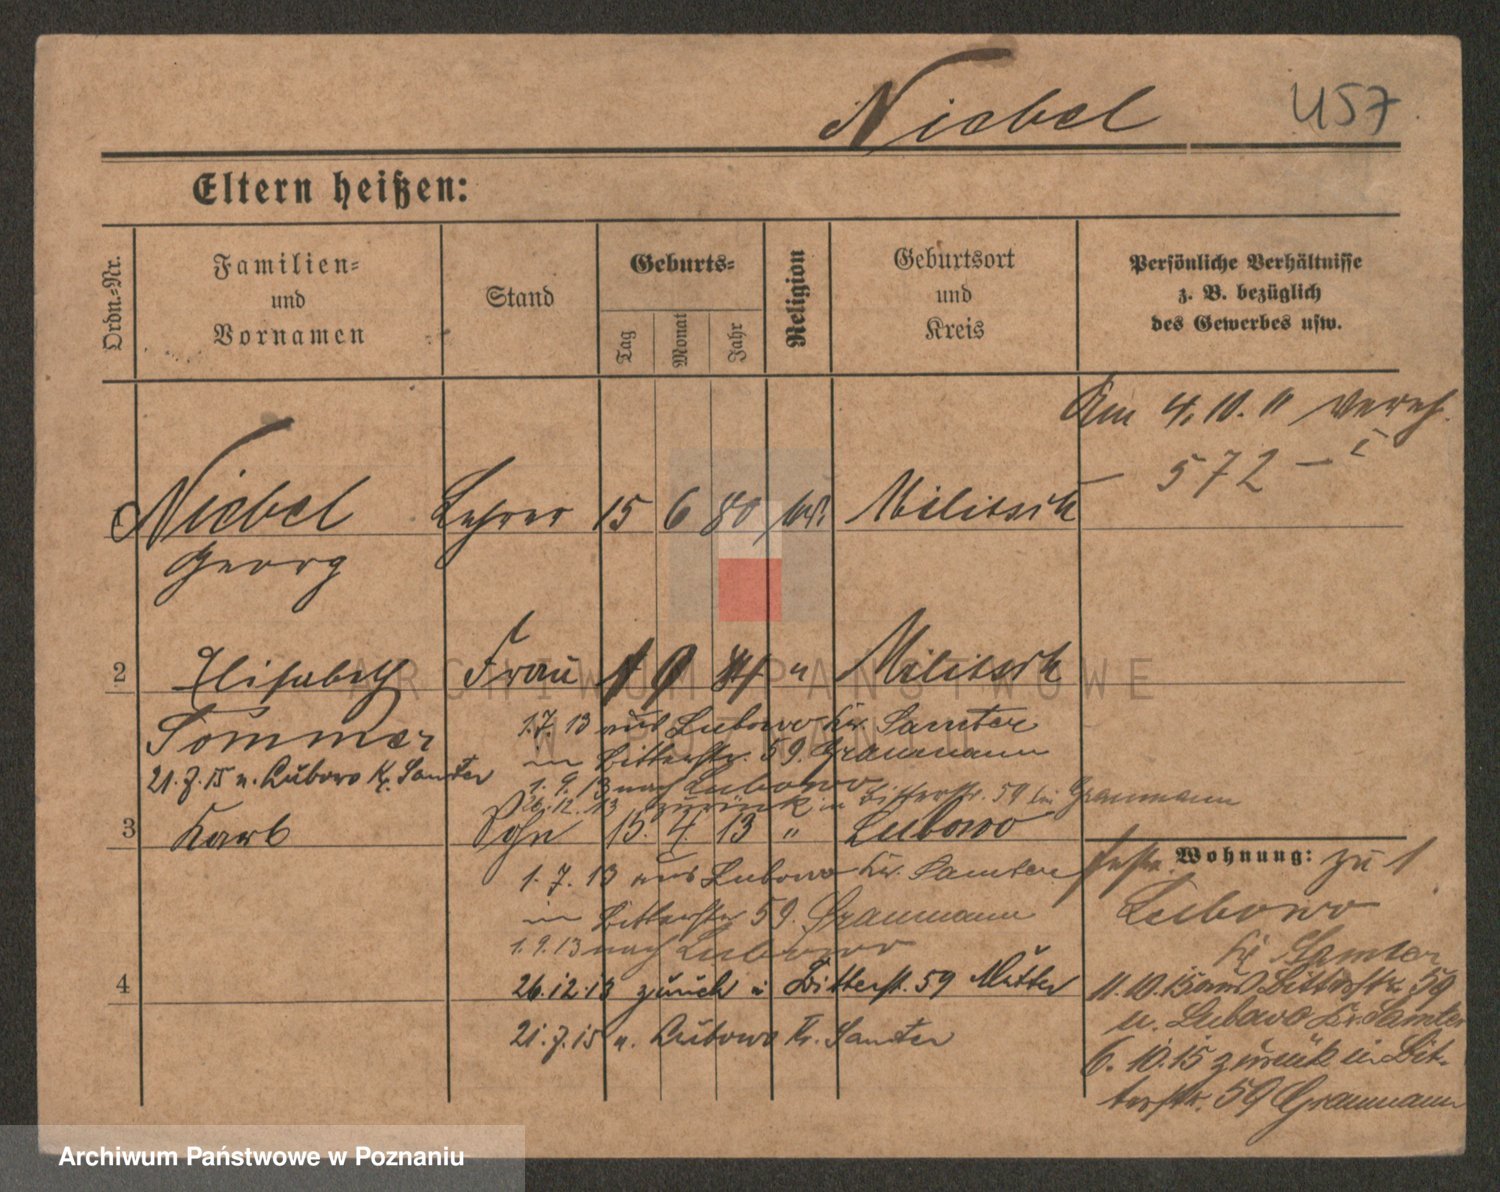 Niebel 457
Eltern heißen:
Ordn.-Nr.
Familien-
und
Vornamen
Stand
Geburts-
Tag
Monat
Jahr
Religion
Geburtsort
und
Kreis
Persönliche Verhältnisse
z. B. bezüglich
des Gewerbes usw.
Am 4. 10. 11
— 572 —
Niebel Lehrer 15 6 80 Militsch
Georg
2 Elisabeth Frau 1 9 84 " Militsch
Sommer
1.7.13 aus Lubowo Kr. Samter
in Bitterstr. 59. Graumann
21.7.15 n. Lubowo Kr. Samter
1.9.13 nach Lubowo
26.12.13 zurück in Bitterstr. 59 bei Graumann
3 Karl Sohn 15. 4 13 " Lubowo
1.7.13 aus Lubowo Kr. Samter
in Bitterstr. 59. Graumann
1.9.13 nach Lubowo
4 26.12.13 zurück i Bitterst. 59 Mutter
21.7.15 n. Lubowo Kr. Samter
Wohnung: zu 1
Lubowo
Kr Samter
11.10.15 aus Bitterstr. 59
n. Lubowo Kr. Samter
6.10.15 zurück in Bit-
terstr. 59 Graumann
ARCHIWUM PAŃSTWOWE
W POZNANIU
Archiwum Państwowe w Poznaniu